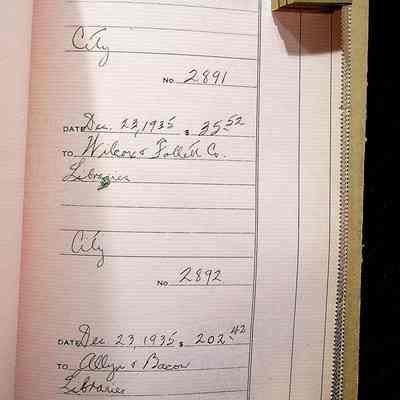 City
No 2891
DATE Dec. 23, 1935 $ 35.52
TO Wilcox & Follett Co.
Libraries
City
No 2892
DATE Dec. 23, 1935 $ 202.42
TO Allyn & Bacon
Libraries